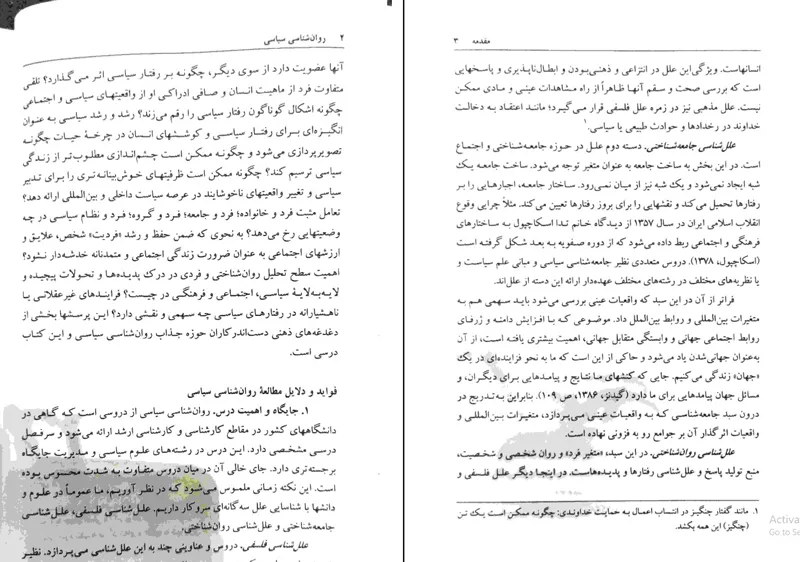 ۲ روان‌شناسی سیاسی
آنها عضویت دارد از سوی دیگر، چگونه بر رفتار سیاسی اثر می‌گذارد؟ تلقی
متفاوت فرد از ماهیت انسان و صافی ادراکی او از واقعیتهای سیاسی و اجتماعی
چگونه اشکال گوناگون رفتار سیاسی را رقم می‌زند؟ رشد و رشد سیاسی به عنوان
انگیزه‌ای برای رفتار سیاسی و کوششهای انسان در چرخهٔ حیات چگونه
تصویرپردازی می‌شود و چگونه ممکن است چشم‌اندازی مطلوب‌تر از زندگی
سیاسی ترسیم کند؟ چگونه ممکن است ظرفیتهای خوش‌بینانه‌تری را برای تدبیر
سیاسی و تغییر واقعیتهای ناخوشایند در عرصه سیاست داخلی و بین‌المللی ارائه دهد؟
تعامل مثبت فرد و خانواده؛ فرد و جامعه؛ فرد و گروه؛ فرد و نظام سیاسی در چه
وضعیتهایی رخ می‌دهد؟ به نحوی که ضمن حفظ و رشد «فردیت» شخص، علایق و
ارزشهای اجتماعی به عنوان ضرورت زندگی اجتماعی و متمدنانه خدشه‌دار نشود؟
اهمیت سطح تحلیل روان‌شناختی و فردی در درک پدیده‌ها و تحولات پیچیده و
لایه‌به‌لایهٔ سیاسی، اجتماعی و فرهنگی در چیست؟ فرایندهای غیرعقلانی یا
ناهشیارانه در رفتارهای سیاسی چه سهمی و نقشی دارد؟ این پرسشها بخشی از
دغدغه‌های ذهنی دست‌اندرکاران حوزه جذاب روان‌شناسی سیاسی و این کتاب
درسی است.
فواید و دلایل مطالعهٔ روان‌شناسی سیاسی
۱. جایگاه و اهمیت درس. روان‌شناسی سیاسی از دروسی است که گاهی در
دانشگاههای کشور در مقاطع کارشناسی و کارشناسی ارشد ارائه می‌شود و سرفصل
درسی مشخصی دارد. این درس در رشته‌های علوم سیاسی و مدیریت جایگاه
برجسته‌تری دارد. جای خالی آن در میان دروس متفاوت به شدت محسوس بوده
است. این نکته زمانی ملموس می‌شود که در نظر آوریم، ما عموماً دو علوم و
دانشها با شناسایی علل سه‌گانه‌ای سروکار داریم. علل‌شناسی فلسفی، علل‌شناسی
جامعه‌شناختی و علل‌شناسی روان‌شناختی.
علل‌شناسی فلسفی. دروس و عناوینی چند به این علل‌شناسی می‌پردازد. نظیر
مقدمه ۳
انسانهاست. ویژگی این علل در انتزاعی و ذهنی‌بودن و ابطال‌ناپذیری و پاسخهایی
است که بررسی صحت و سقم آنها ظاهراً از راه مشاهدات عینی و مادی ممکن
نیست. علل مذهبی نیز در زمره علل فلسفی قرار می‌گیرد؛ مانند اعتقاد به دخالت
خداوند در رخدادها و حوادث طبیعی یا سیاسی.۱
علل‌شناسی جامعه‌شناختی. دسته دوم علل در حوزه جامعه‌شناختی و اجتماع
است. در این بخش به ساخت جامعه به عنوان متغیر توجه می‌شود. ساخت جامعه یک
شبه ایجاد نمی‌شود و یک شبه نیز از میان نمی‌رود. ساختار جامعه، اجبارهایی را بر
رفتارها تحمیل می‌کند و نقشهایی را برای بروز رفتارها تعیین می‌کند. مثلاً چرایی وقوع
انقلاب اسلامی ایران در سال ۱۳۵۷ از دیدگاه خانم تدا اسکاچپول به ساختارهای
فرهنگی و اجتماعی ربط داده می‌شود که از دوره صفویه به بعد شکل گرفته است
(اسکاچپول، ۱۳۷۸). دروس متعددی نظیر جامعه‌شناسی سیاسی و مبانی علم سیاست و
یا نظریه‌های مختلف در رشته‌های مختلف عهده‌دار ارائه این دسته از علل‌اند.
فراتر از آن در این سبد که واقعیات عینی بررسی می‌شود باید سهمی هم به
متغیرات بین‌المللی و روابط بین‌الملل داد. موضوعی که با افزایش دامنه و ژرفای
روابط اجتماعی جهانی و وابستگی متقابل جهانی، اهمیت بیشتری یافته است، از آن
به‌عنوان جهانی‌شدن یاد می‌شود و حاکی از این است که ما به نحو فزاینده‌ای در یک
«جهان» زندگی می‌کنیم. جایی که کنشهای ما نتایج و پیامدهایی برای دیگران، و
مسائل جهان پیامدهایی برای ما دارد (گیدنز، ۱۳۸۶، ص ۱۰۹). بنابراین به تدریج در
درون سبد جامعه‌شناسی که به واقعیات عینی می‌پردازد، متغیرات بین‌المللی و
واقعیات اثرگذار آن بر جوامع رو به فزونی نهاده است.
علل‌شناسی روان‌شناختی. در این سبد، «متغیر فرد» و روان شخصی و شخصیت،
منبع تولید پاسخ و علل‌شناسی رفتارها و پدیده‌هاست. در اینجا دیگر علل فلسفی و
۱. مانند گفتار چنگیز در انتساب اعمال به حمایت خداوندی: چگونه ممکن است یک تن
(چنگیز) این همه بکشد.
Activa
Go to Se